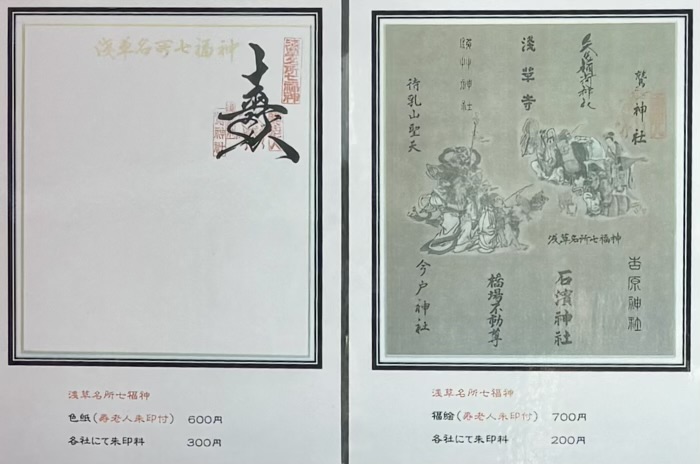 浅草名所七福神
壽
浅草名所七福神
浅草名所七福神
色紙(寿老人朱印付) 600円
各社にて朱印料 300円
鷲神社
矢先稲荷神社
浅草寺
浅草神社
待乳山聖天
浅草名所七福神
吉原神社
石濱神社
橋場不動尊
今戸神社
浅草名所七福神
福絵(寿老人朱印付) 700円
各社にて朱印料 200円